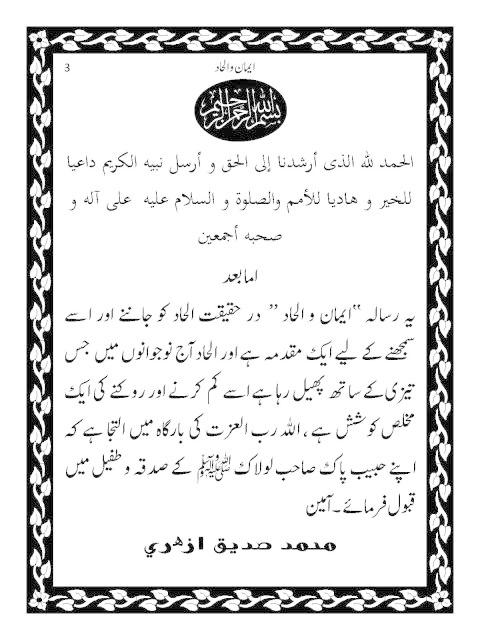 3
ایمان والحاد
بسم الله الرحمن الرحیم
الحمد لله الذى أرشدنا إلى الحق و أرسل نبيه الكريم داعيا
للخير و هاديا للأمم والصلوة و السلام عليه على آله و
صحبه أجمعين
اما بعد
یہ رسالہ "ایمان و الحاد " در حقیقت الحاد کو جاننے اور اسے
سمجھنے کے لیے ایک مقدمہ ہے اور الحاد آج نوجوانوں میں جس
تیزی کے ساتھ پھیل رہا ہے اسے کم کرنے اور روکنے کی ایک
مخلص کوشش ہے ، اللہ رب العزت کی بارگاہ میں التجا ہے کہ
اپنے حبیب پاک صاحب لولاک ﷺ کے صدقہ و طفیل میں
قبول فرمائے ۔ آمین
محمد صدیق ازھری